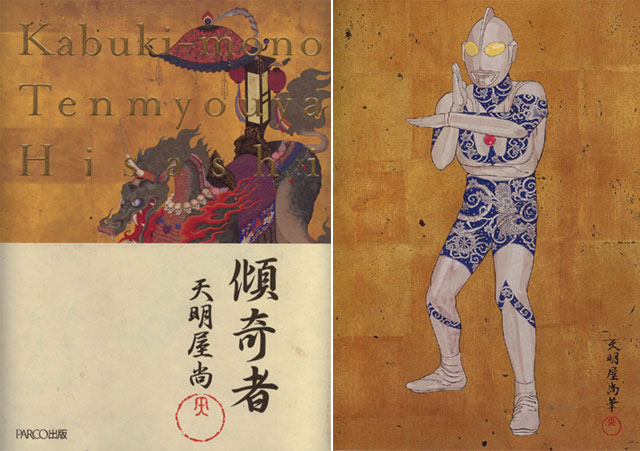 Kabuki-mono
Tenmyouya
Hisashi
傾奇者
天明屋尚
天
PARCO出版
天明屋尚筆